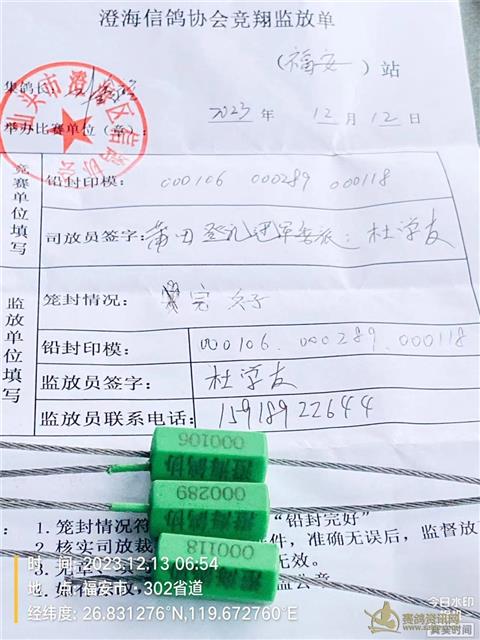 澄海信鸽协会竞翔监放单
(福安)站
集鸽长:
2023年 12月12日
举办比赛单位(章):
汕头市澄海区信鸽协会
竞赛单位填写
铅封印模: 000106 000289 000118
司放员签字: 莆田 杜学友
监放单位填写
笼封情况: 完好
铅封印模: 000106.000289.000118
监放员签字: 杜学友
监放员联系电话: 15918922644
000106 澄海鸽协
000289 澄海鸽协
000118 澄海鸽协
1. 笼封情况符 “铅封完好”
2. 核实司放裁 件,准确无误后,监督放
3. 无 无效。
4. 监公章
时 间: 2023.12.13 06:54
地 点: 福安市·302省道
经纬度: 26.831276°N,119.672760°E
今日水印
相机
赛鸽资讯网
赛奖时间